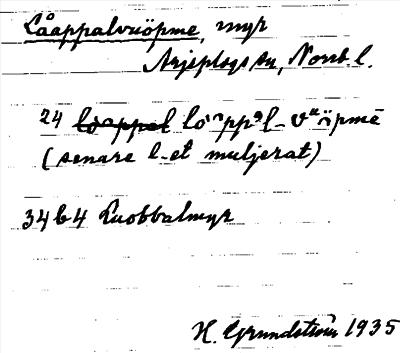 Låappalvuöpme, myr
Arjeplogs sn, Norrb. l.
24 l-vuöpmē
(senare l-et muljerat)
34b4 Luobbalmyr
H. Grundström 1935